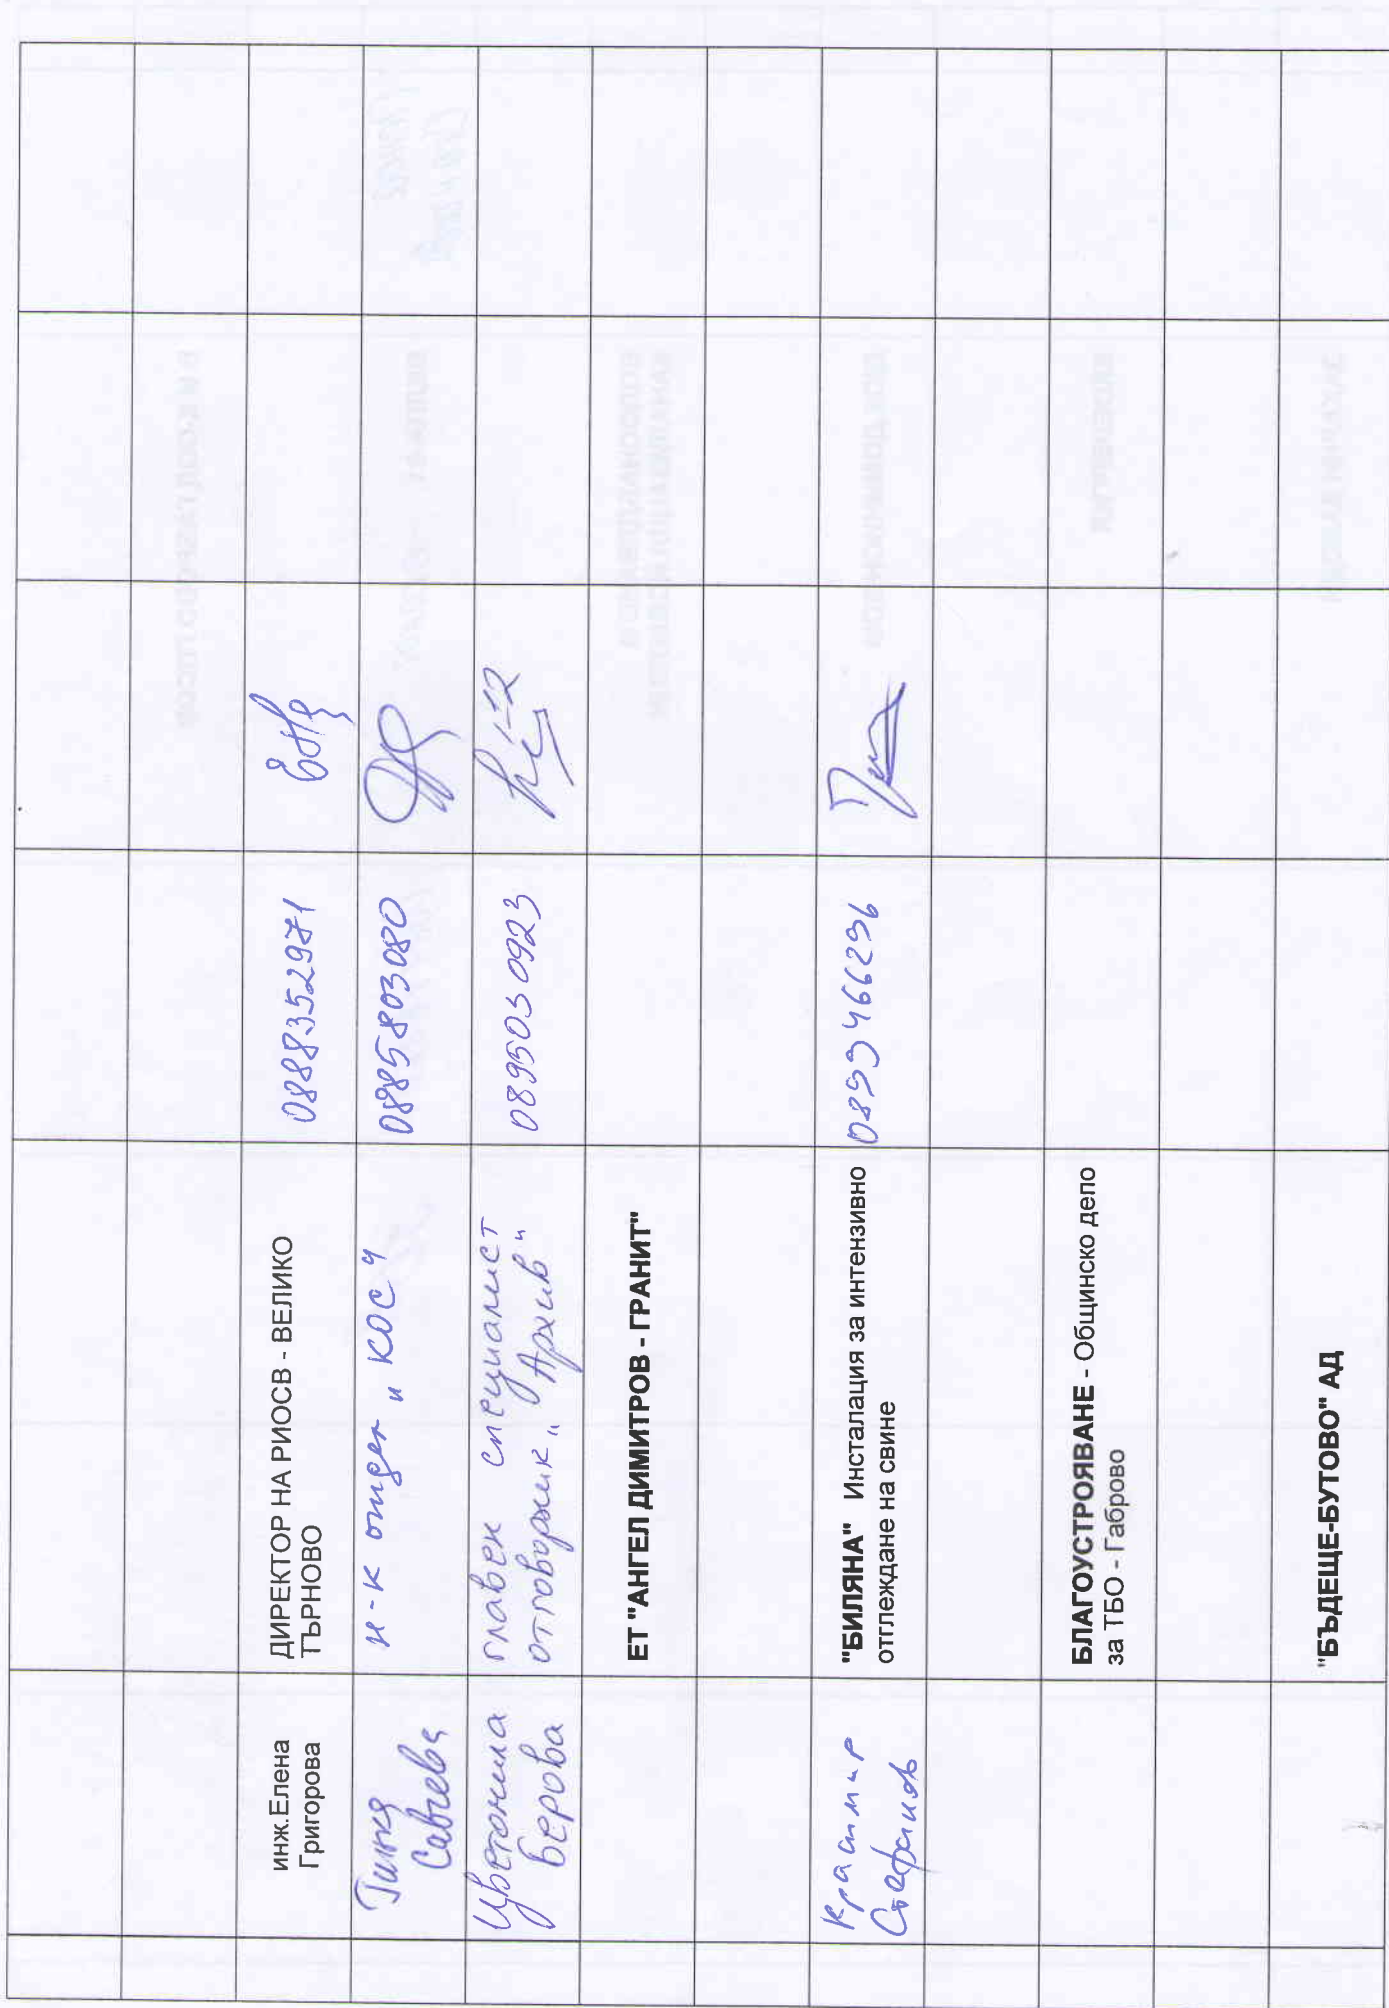 инж.Елена
Григорова
ДИРЕКТОР НА РИОСВ - ВЕЛИКО
ТЪРНОВО
0888352971
Савчева
н-к отдел „КОС"
0885803080
Цветомила
Берова
главен специалист
отговорник „Архив"
0895030923
ЕТ "АНГЕЛ ДИМИТРОВ - ГРАНИТ"
Красимир
Стефанов
"БИЛЯНА" Инсталация за интензивно
отглеждане на свине
0899466296
БЛАГОУСТРОЯВАНЕ - Общинско депо
за ТБО - Габрово
"БЪДЕЩЕ-БУТОВО" АД